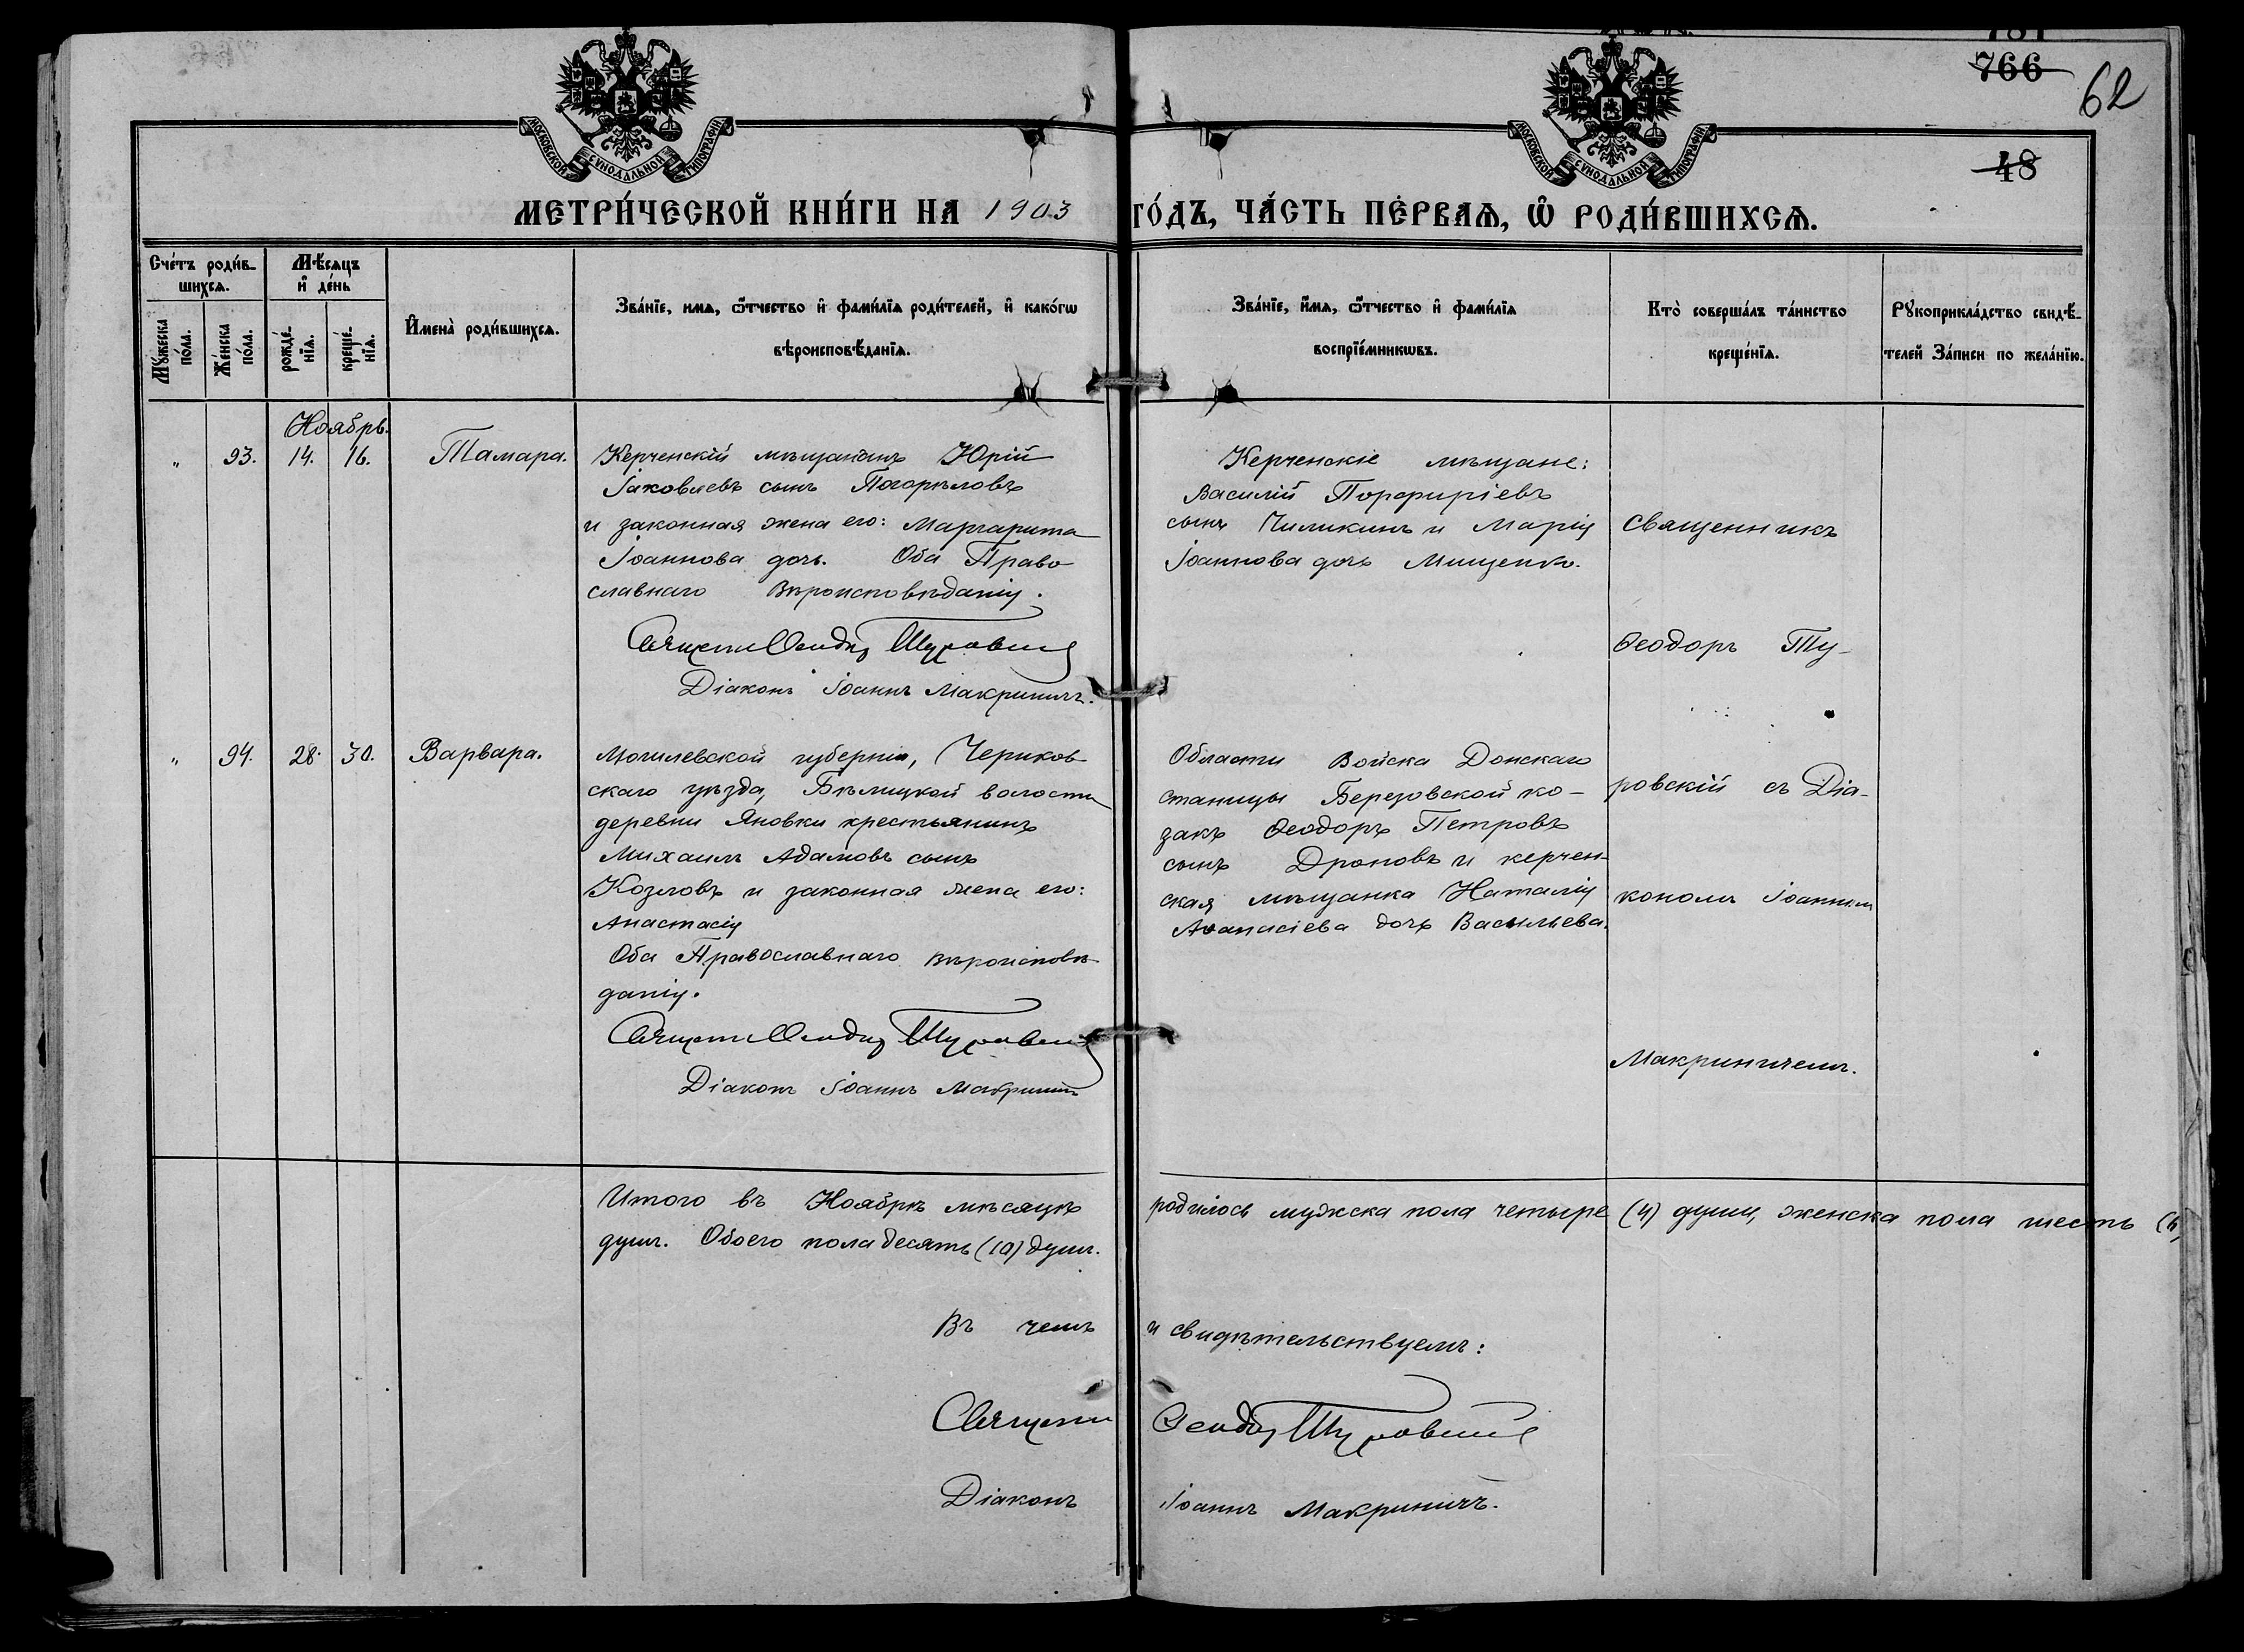 781
766
62
48
МОСКОВСКОЙ СѴНОДАЛЬНОЙ ТИПОГРАФІИ
МОСКОВСКОЙ СѴНОДАЛЬНОЙ ТИПОГРАФІИ
МЕТРИ́ЧЕСКОЙ КНИ́ГИ НА 1903 ГО́ДЪ, ЧА́СТЬ ПЕ́РВАѦ, Ѿ РОДИ́ВШИХСѦ.
Сче́тъ роди́в-
шихсѧ.
Мѣ́сѧцъ
и҆ де́нь
Мꙋ́жеска
по́ла.
Же́нска
по́ла.
рожде́-
нїѧ.
креще́-
нїѧ.
И҆мена̀ роди́вшихсѧ.
Зва́нїе, имѧ, ѻ҆́тчество и҆ фами́лїѧ роди́телей, и҆ како́гѡ
вѣроисповѣ́данїѧ.
Зва́нїе, и҆́мѧ, ѻ҆́тчество и҆ фами́лїѧ
воспрїе́мникѡвъ.
Кто̀ соверша́лъ та́инство
креще́нїѧ.
Рꙋкоприкла́дство свидѣ́-
телей За́писи по жела́нїю.
Ноябрь.
" 93. 14. 16. Тамара.
Керченскій мѣщанинъ Юрій
Іаковлевъ сынъ Погорѣловъ
и законная жена его: Маргарита
Іоаннова дочь. Оба Право
славнаго Вѣроисповѣданія.
Священ Ѳеодоръ Туровскій
Діаконъ Іоаннъ Макриничъ.
Керченскіе мѣщане:
Василій Порфиріевъ
сынъ Чиликинъ и Марія
Іоаннова дочь Мищенко.
Священникъ
Ѳеодоръ Ту-
" 94. 28. 30. Варвара.
Могилевской губерніи, Чериков
скаго уѣзда, Бѣлицкой волости
деревни Яновки крестьянинъ
Михаилъ Адамовъ сынъ
Козловъ и законная жена его:
Анастасія
Оба Православнаго вѣроисповѣ-
данія.
Священ Ѳеодоръ Туровскій
Діаконъ Іоаннъ Макриничъ
Области Войска Донскаго
станицы Березовской ко-
закъ Ѳеодоръ Петровъ
сынъ Дроновъ и керчен-
ская мѣщанка Наталія
Аѳанасіева дочь Васильева.
ровскій съ Діа-
кономъ Іоанномъ
Макриничемъ.
Итого въ Ноябрѣ мѣсяцѣ родилось мужска пола четыре (4) души, женска пола шесть (6)
душъ. Обоего пола десять (10) душъ.
Въ чемъ и свидѣтельствуемъ:
Священ Ѳеодоръ Туровскій
Діаконъ Іоаннъ Макриничъ.